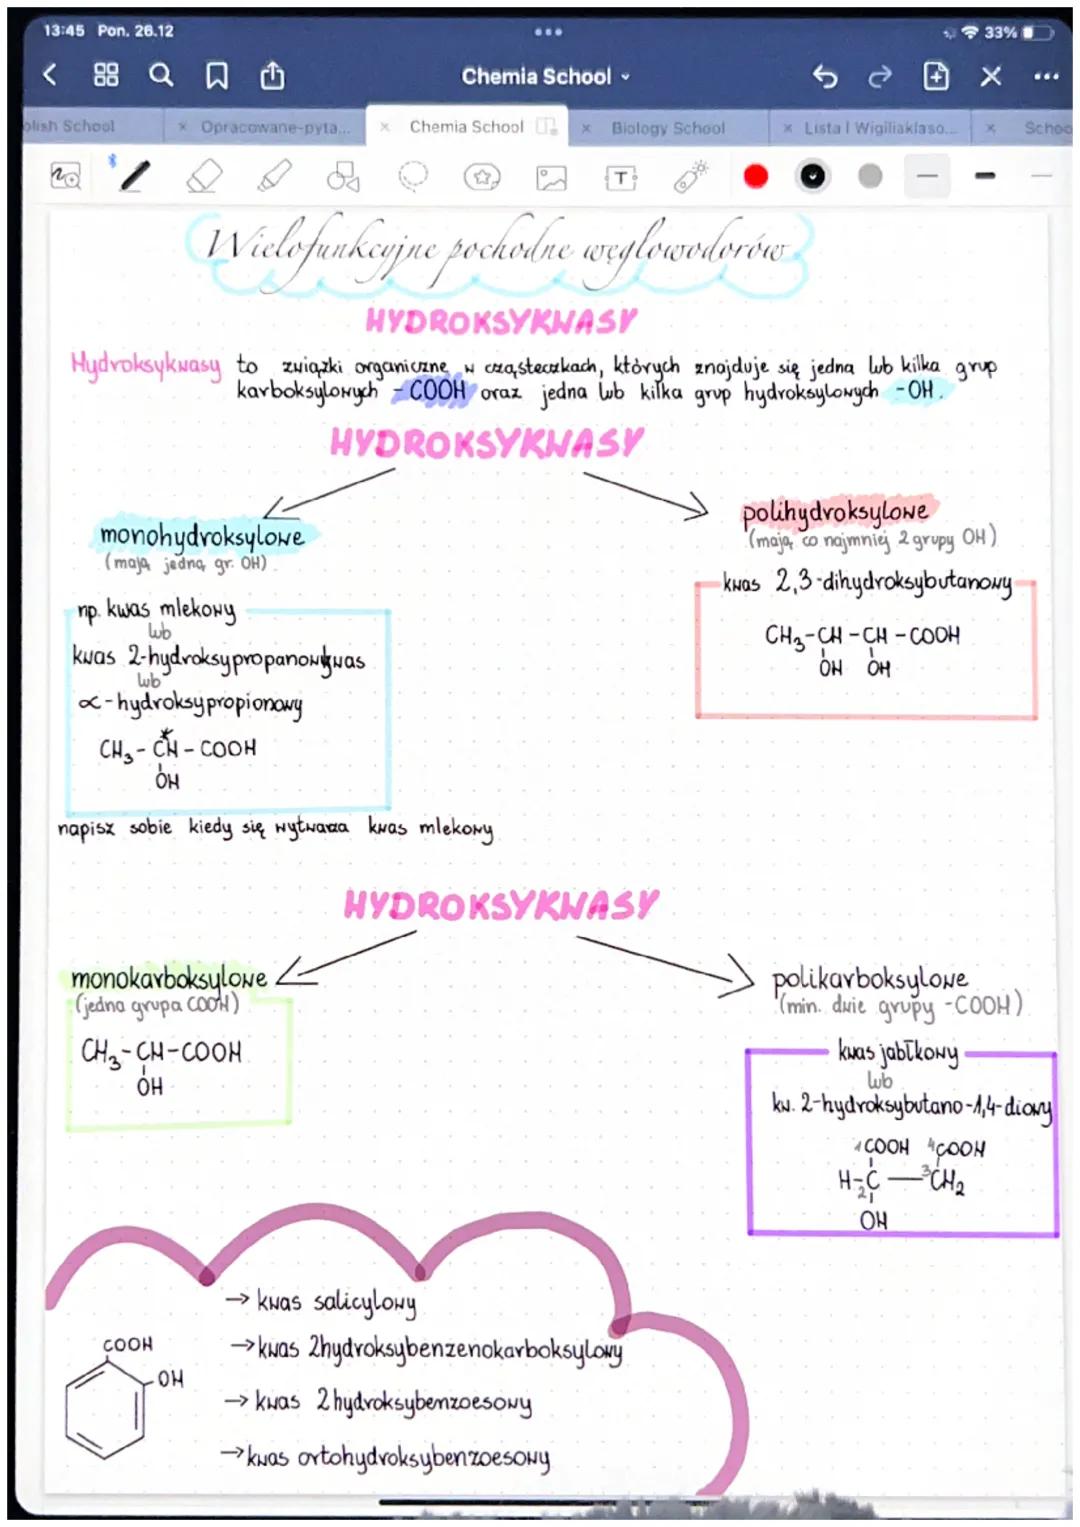 13:45 Pon. 26.12
33%
Chemia School
olish School
× Opracowane-pyta...
× Chemia School
× Biology School
× Lista I Wigiliaklaso...
× Schoo
T
Wielofunkcyjne pochodne węglowodorów
HYDROKSYKWASY
Hydroksykwasy to związki organiczne w cząsteczkach, których znajduje się jedna lub kilka grup
karboksylowych -COOH oraz jedna lub kilka grup hydroksylowych -OH.
HYDROKSYKWASY
monohydroksylowe
(mają jedną gr. OH)
np. kwas mlekowy
lub
kwas 2-hydroksypropanowy kwas
lub
∝-hydroksypropionowy
CH₃-CH*-COOH
OH
napisz sobie kiedy się wytwarza kwas mlekowy
polihydroksylowe
(mają co najmniej 2 grupy OH)
kwas 2,3-dihydroksybutanowy
CH₃-CH-CH-COOH
OH OH
HYDROKSYKWASY
monokarboksylowe
(jedna grupa COOH)
CH₃-CH-COOH
OH
polikarboksylowe
(min. dwie grupy -COOH)
kwas jabłkowy
lub
kw. 2-hydroksybutano-1,4-diowy
1COOH 4COOH
H-C—3CH₂
2
OH
→ kwas salicylowy
→ kwas 2hydroksybenzenokarboksylowy
→ kwas 2hydroksybenzoesowy
→ kwas ortohydroksybenzoesowy
COOH
OH